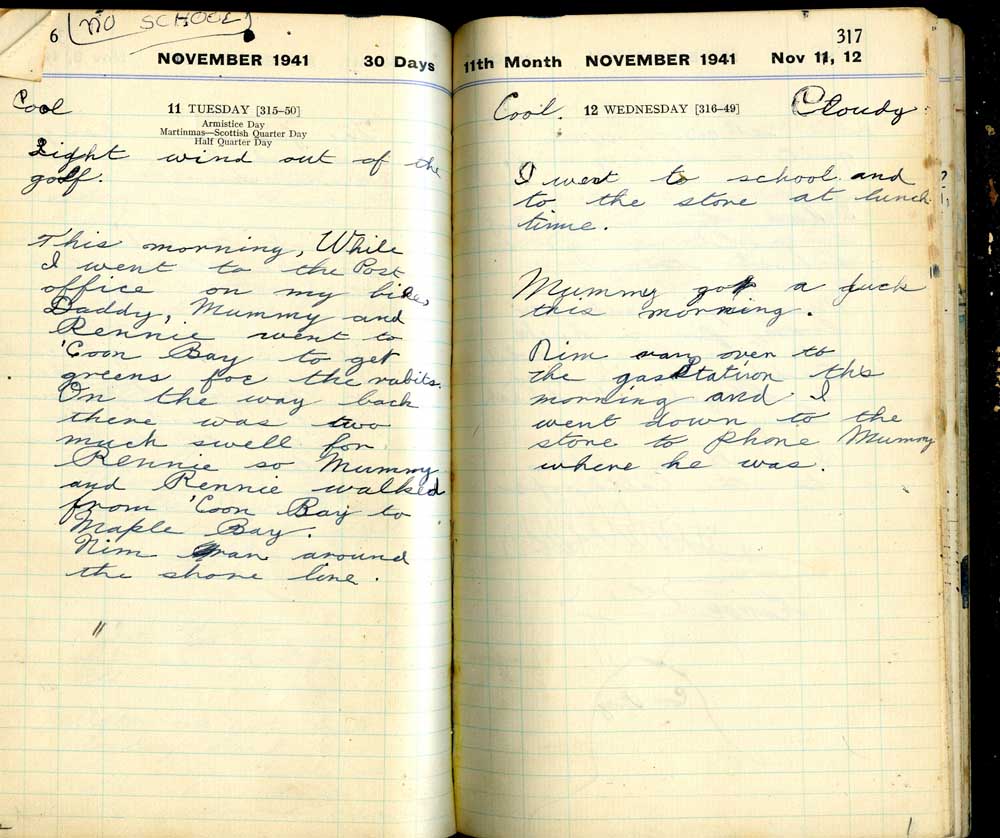 6 (NO SCHOOL)
NOVEMBER 1941 30 Days
Cool
11 TUESDAY [315–50]
Armistice Day
Martinmas—Scottish Quarter Day
Half Quarter Day
Light wind out of the
golf.
This morning, While
I went to the Post
office on my bike,
Daddy, Mummy and
Rennie went to
'Coon Bay to get
greens foe the rabits.
On the way back
there was two
much swell for
Rennie so Mummy
and Rennie walked
from 'Coon Bay to
Maple Bay.
Nim ran around
the shore line.
317
11th Month NOVEMBER 1941 Nov 11, 12
Cool. 12 WEDNESDAY [316–49] Cloudy
I went to school and
to the store at lunch
time.
Mummy got a duck
this morning.
Nim ran over to
the gas station this
morning and I
went down to the
store to phone Mummy
where he was.